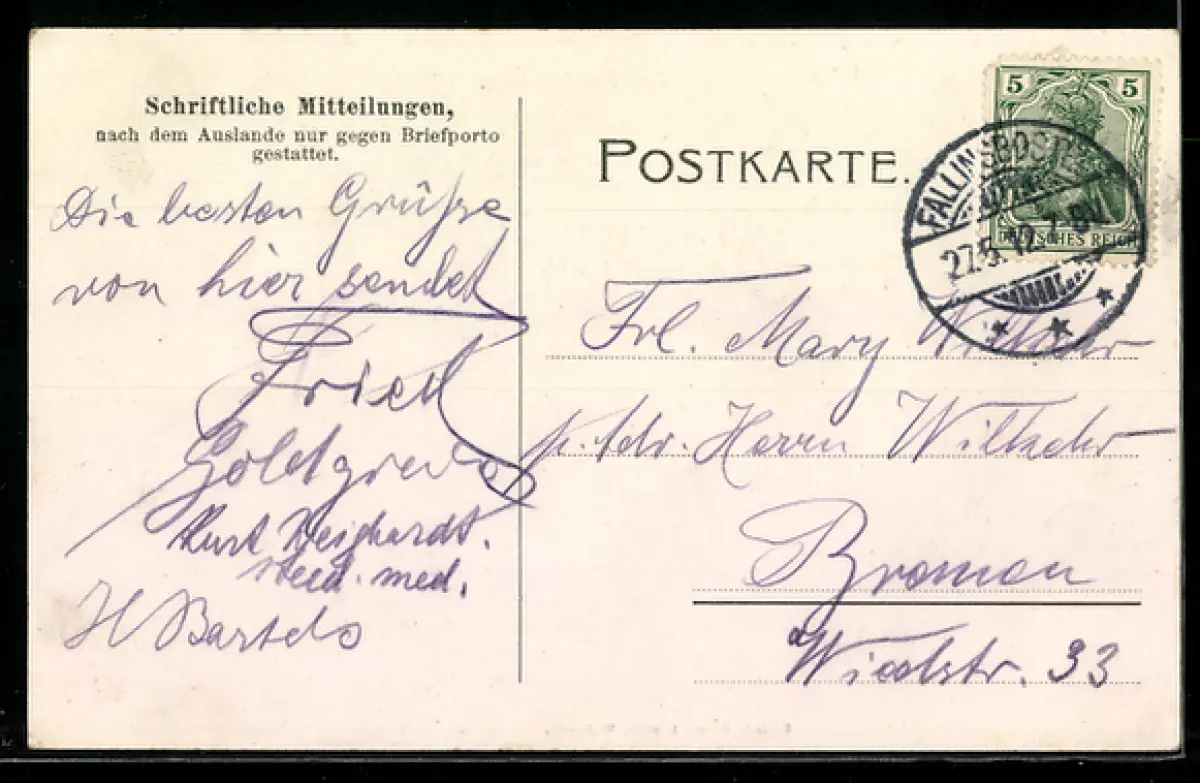 Schriftliche Mitteilungen,
nach dem Auslande nur gegen Briefporto
gestattet.
Die besten Grüße
von hier sendet
Fried
Kurt
stud. med.
H Bartels
POSTKARTE.
5 5
DEUTSCHES REICH
FALLINGBOSTEL
27.5.12. 7-8N.
Frl. Mary
p. Adr. Herrn
Bremen
33